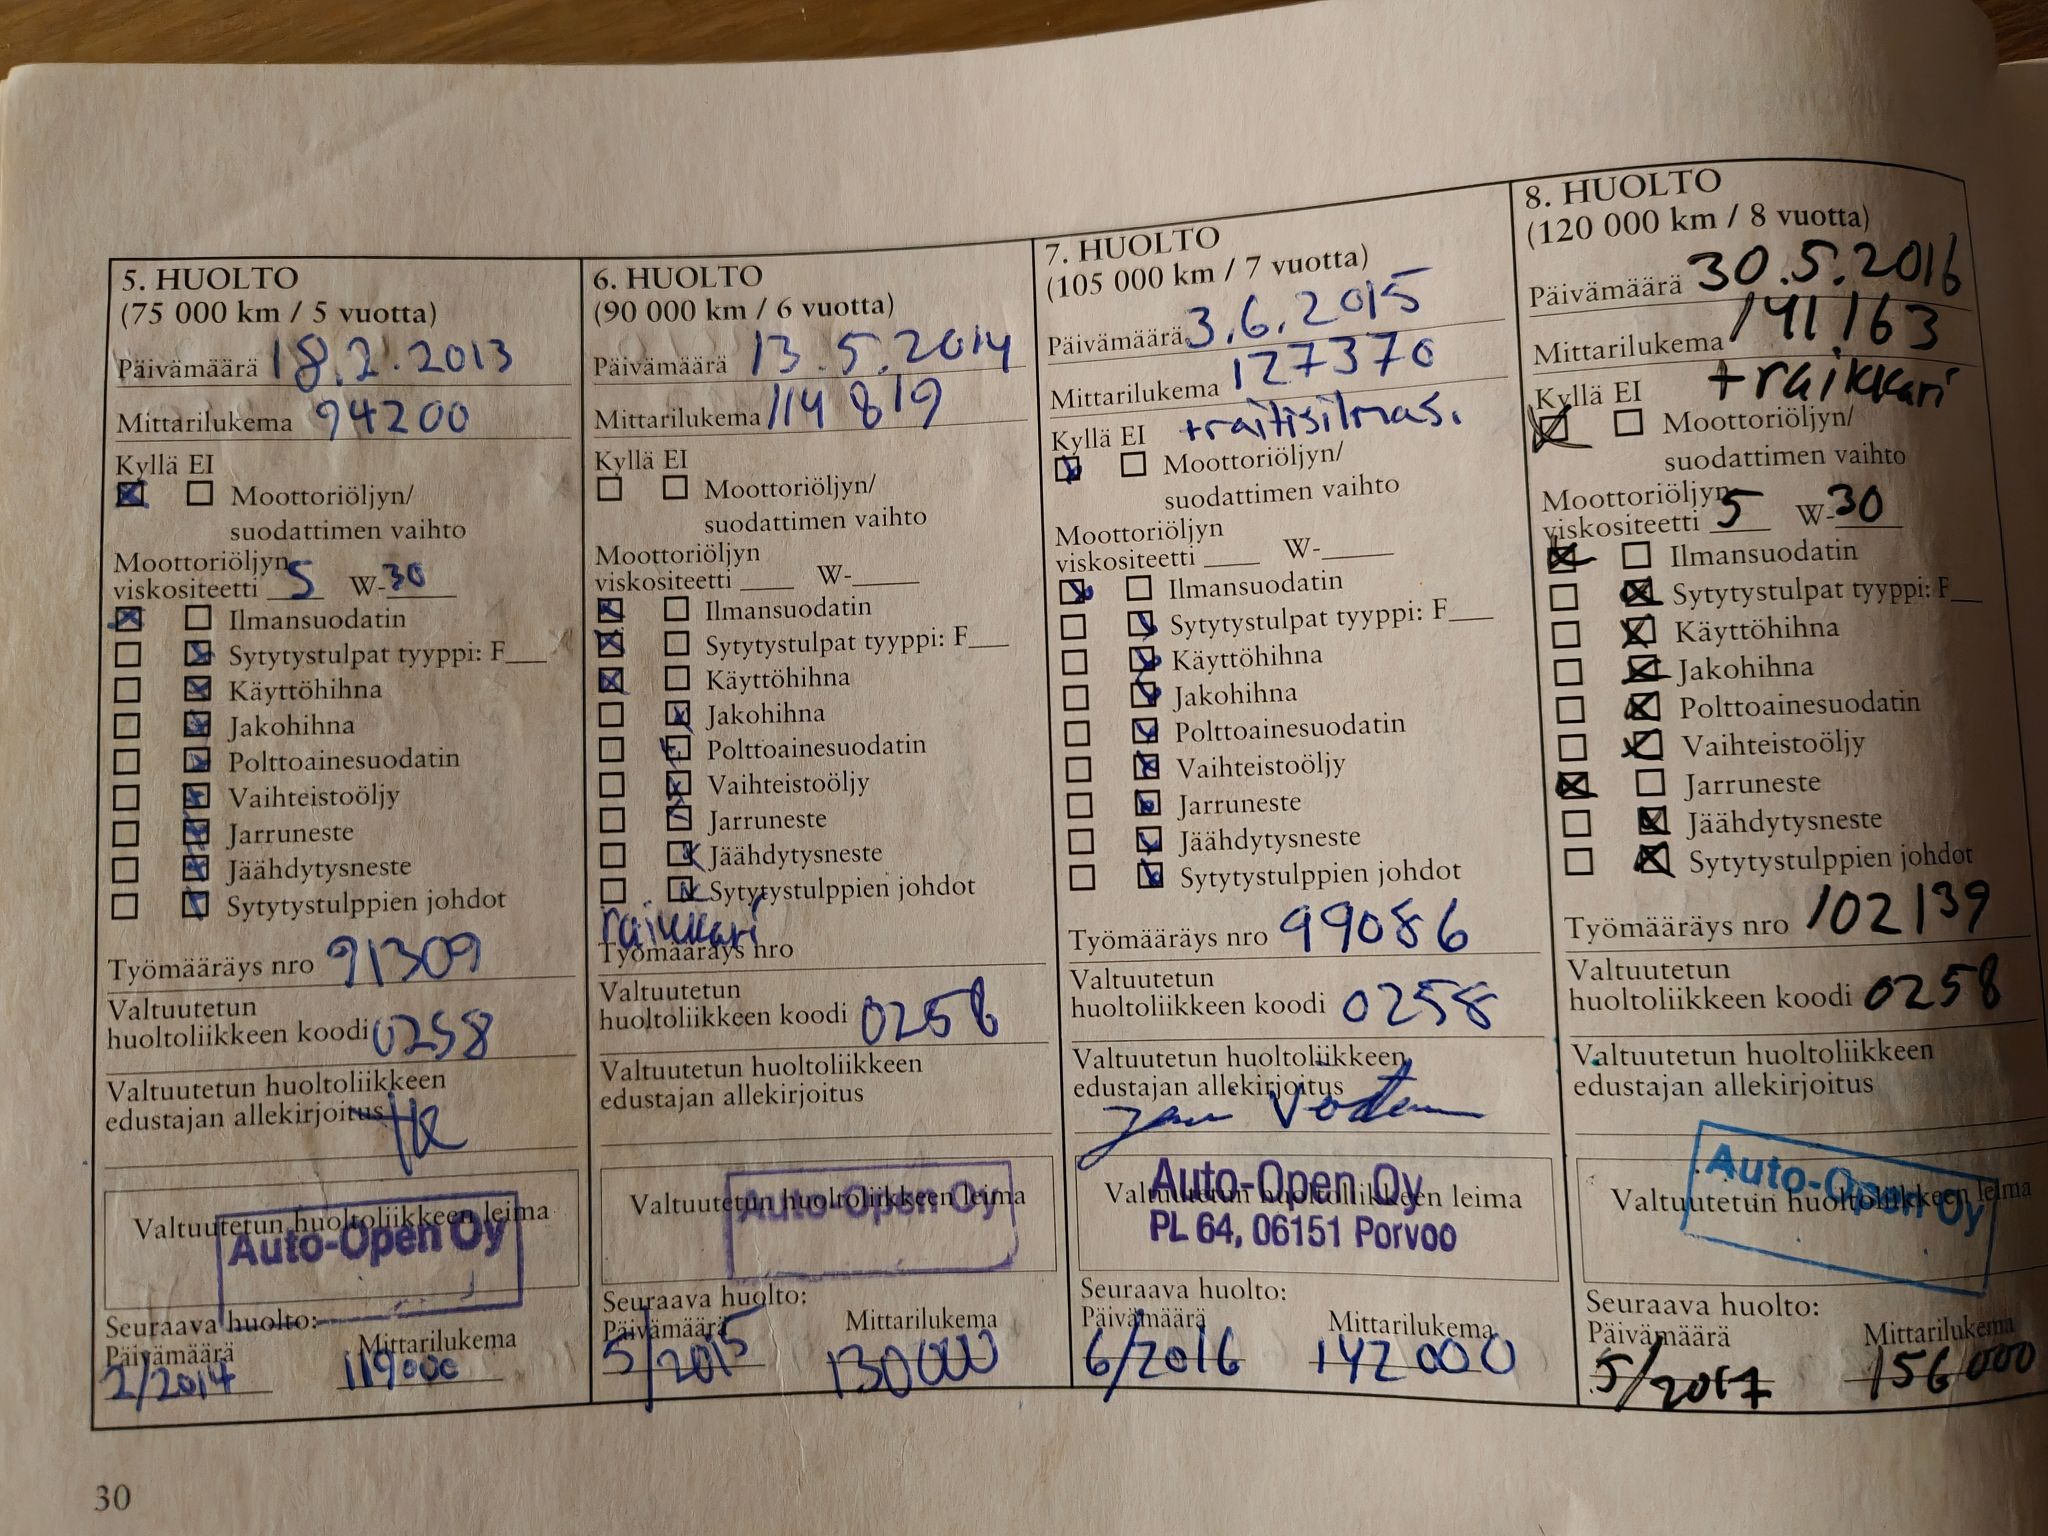 5. HUOLTO
(75 000 km / 5 vuotta)
Päivämäärä 18.2.2013
Mittarilukema 94200
Kyllä EI
Moottoriöljyn/
suodattimen vaihto
Moottoriöljyn
viskositeetti 5 W-30
Ilmansuodatin
Sytytystulpat tyyppi: F
Käyttöhihna
Jakohihna
Polttoainesuodatin
Vaihteistoöljy
Jarruneste
Jäähdytysneste
Sytytystulppien johdot
Työmääräys nro 91309
Valtuutetun
huoltoliikkeen koodi 0258
Valtuutetun huoltoliikkeen
edustajan allekirjoitus
Valtuutetun huoltoliikkeen leima
Auto-Open Oy
Seuraava huolto:
Päivämäärä Mittarilukema
2/2014 119000
6. HUOLTO
(90 000 km / 6 vuotta)
Päivämäärä 13.5.2014
Mittarilukema 114 819
Kyllä EI
Moottoriöljyn/
suodattimen vaihto
Moottoriöljyn
viskositeetti W-
Ilmansuodatin
Sytytystulpat tyyppi: F
Käyttöhihna
Jakohihna
Polttoainesuodatin
Vaihteistoöljy
Jarruneste
Jäähdytysneste
Sytytystulppien johdot
raikkari
Työmääräys nro
Valtuutetun
huoltoliikkeen koodi 0258
Valtuutetun huoltoliikkeen
edustajan allekirjoitus
Valtuutetun huoltoliikkeen leima
Auto-Open Oy
Seuraava huolto:
Päivämäärä Mittarilukema
5/2015 130000
7. HUOLTO
(105 000 km / 7 vuotta)
Päivämäärä 3.6.2015
Mittarilukema 127370
Kyllä EI +raitisilmas.
Moottoriöljyn/
suodattimen vaihto
Moottoriöljyn
viskositeetti W-
Ilmansuodatin
Sytytystulpat tyyppi: F
Käyttöhihna
Jakohihna
Polttoainesuodatin
Vaihteistoöljy
Jarruneste
Jäähdytysneste
Sytytystulppien johdot
Työmääräys nro 99086
Valtuutetun
huoltoliikkeen koodi 0258
Valtuutetun huoltoliikkeen
edustajan allekirjoitus
Valtuutetun huoltoliikkeen leima
Auto-Open Oy
PL 64, 06151 Porvoo
Seuraava huolto:
Päivämäärä Mittarilukema
6/2016 142000
8. HUOLTO
(120 000 km / 8 vuotta)
Päivämäärä 30.5.2016
Mittarilukema 141163
Kyllä EI +raikkari
Moottoriöljyn/
suodattimen vaihto
Moottoriöljyn
viskositeetti 5 W-30
Ilmansuodatin
Sytytystulpat tyyppi: F
Käyttöhihna
Jakohihna
Polttoainesuodatin
Vaihteistoöljy
Jarruneste
Jäähdytysneste
Sytytystulppien johdot
Työmääräys nro 102139
Valtuutetun
huoltoliikkeen koodi 0258
Valtuutetun huoltoliikkeen
edustajan allekirjoitus
Valtuutetun huoltoliikkeen leima
Auto-Open Oy
Seuraava huolto:
Päivämäärä Mittarilukema
5/2017 156000
30